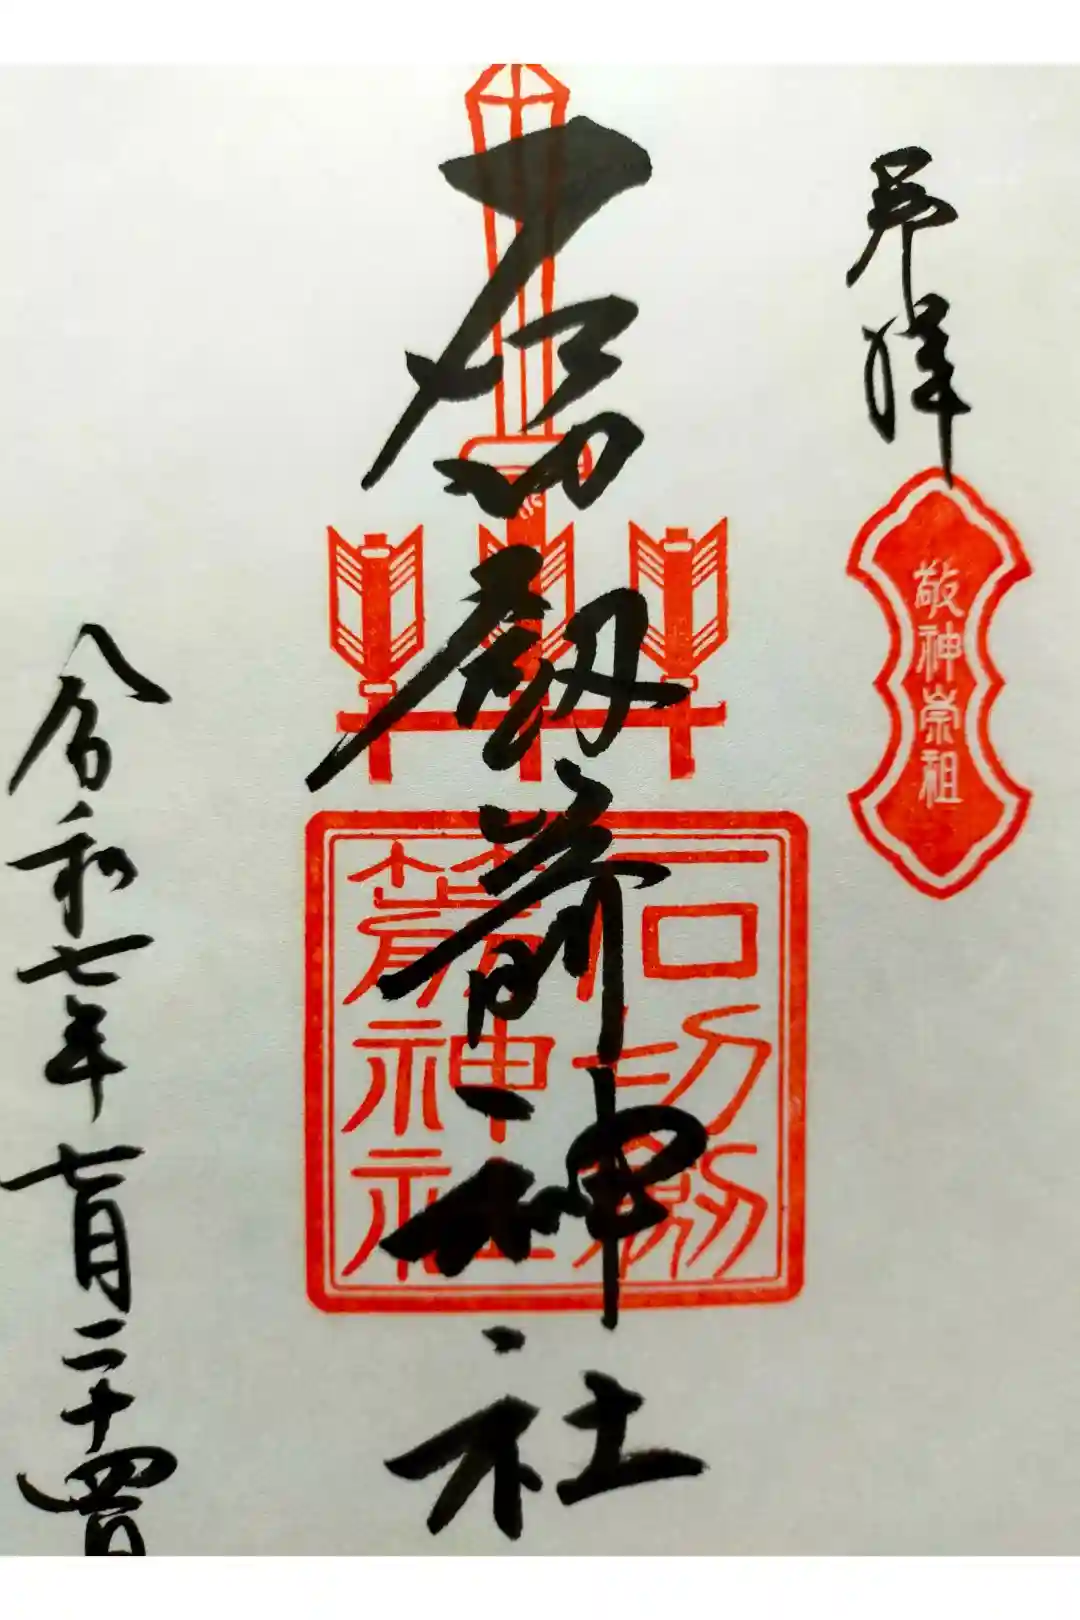 奉拝
敬神崇祖
石切劔箭神社
石切劔
箭神社
令和七年七月二十四日